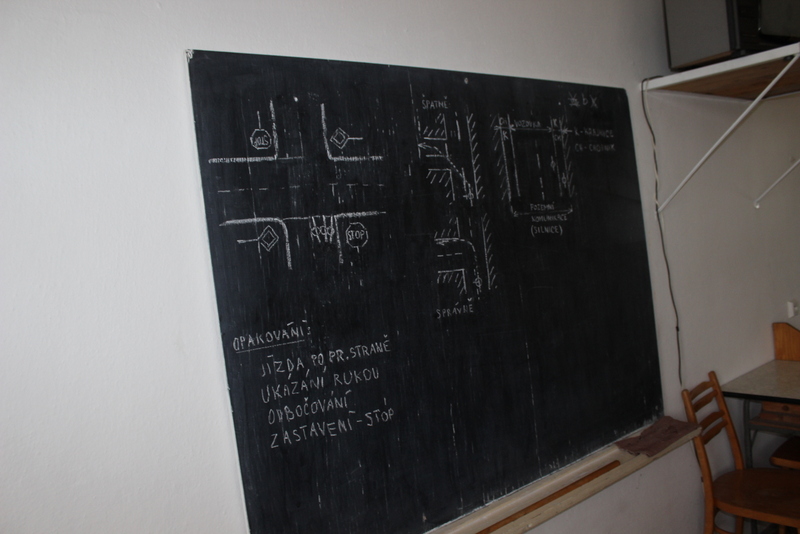 STOP
ŠPATNĚ
VOZOVKA
K - KRAJNICE
CH - CHODNÍK
POZEMNÍ
KOMUNIKACE
(SILNICE)
STOP
SPRÁVNĚ
OPAKOVÁNÍ:
JÍZDA PO PR. STRANĚ
UKÁZÁNÍ RUKOU
ODBOČOVÁNÍ
ZASTAVENÍ - STOP